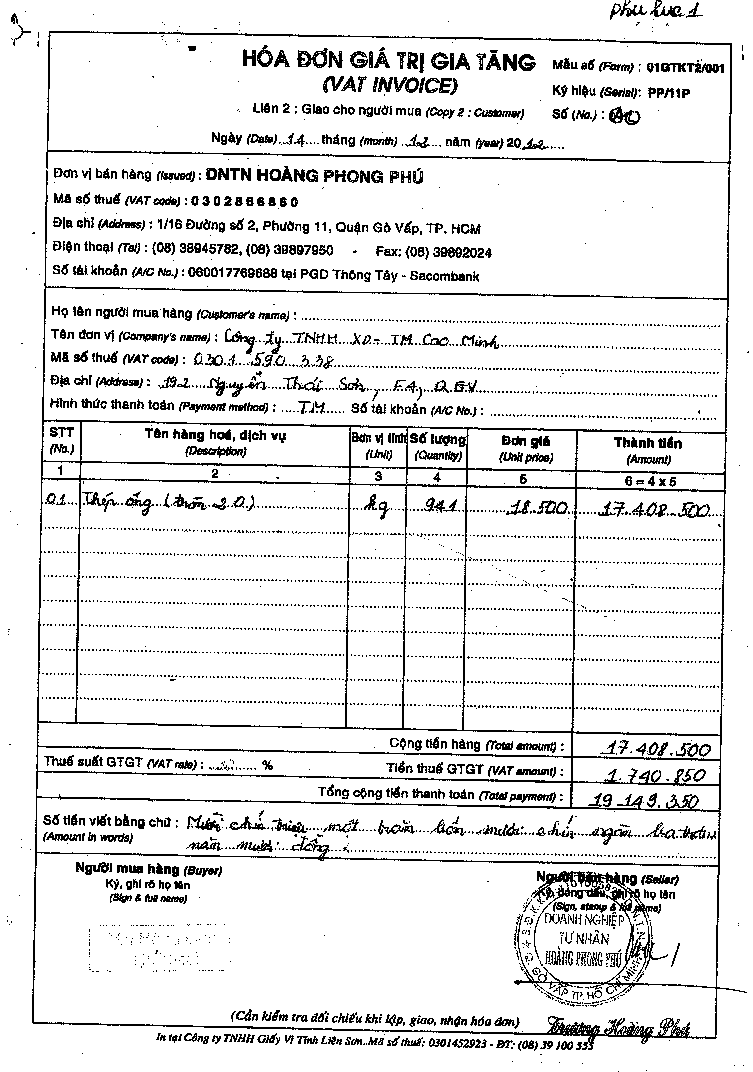 Phụ lục 1
HÓA ĐƠN GIÁ TRỊ GIA TĂNG
(VAT INVOICE)
Mẫu số (Form) : 01GTKT2/001
Ký hiệu (Serial): PP/11P
Liên 2 : Giao cho người mua (Copy 2 : Customer)
Số (No.) :
Ngày (Date) 14 tháng (month) 12 năm (year) 2012
Đơn vị bán hàng (Issued) : DNTN HOÀNG PHONG PHÚ
Mã số thuế (VAT code) : 0302866860
Địa chỉ (Address) : 1/16 Đường số 2, Phường 11, Quận Gò Vấp, TP. HCM
Điện thoại (Tel) : (08) 38945782, (08) 39897950 - Fax: (08) 39892024
Số tài khoản (A/C No.) : 060017769688 tại PGD Thông Tây - Sacombank
Họ tên người mua hàng (Customer's name) :
Tên đơn vị (Company's name) : Công ty TNHH XD - TM Cao Minh
Mã số thuế (VAT code) : 0301 590 338
Địa chỉ (Address) : 192 Nguyễn Thái Sơn, F4, Q GV
Hình thức thanh toán (Payment method) : TM Số tài khoản (A/C No.) :
STT (No.) Tên hàng hoá, dịch vụ (Description) Đơn vị tính (Unit) Số lượng (Quantity) Đơn giá (Unit price) Thành tiền (Amount)
1 2 3 4 5 6 = 4 x 5
01 Thép ống (tròn 20) kg 941 18.500 17.408.500
Cộng tiền hàng (Total amount) : 17.408.500
Thuế suất GTGT (VAT rate) : % Tiền thuế GTGT (VAT amount) : 1.740.850
Tổng cộng tiền thanh toán (Total payment) : 19.149.350
Số tiền viết bằng chữ : Mười chín triệu một trăm bốn mươi chín ngàn ba trăm
(Amount in words) năm mươi đồng.
Người mua hàng (Buyer) Người bán hàng (Seller)
Ký, ghi rõ họ tên đóng dấu, ghi rõ họ tên
(Sign & full name) (Sign, stamp & full name)
DOANH NGHIỆP
TƯ NHÂN
HOÀNG PHONG PHÚ
GÒ VẤP TP. HỒ CHÍ MINH
(Cần kiểm tra đối chiếu khi lập, giao, nhận hóa đơn) Trương Hoàng Phú
In tại Công ty TNHH Giấy Vi Tính Liên Sơn. Mã số thuế: 0301452923 - ĐT: (08) 39 100 555